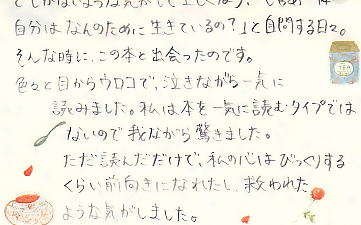 自分はなんのために生きているの?」と自問する日々。
そんな時に、この本と出会ったのです。
色々と目からウロコで、泣きながら一気に
読みました。私は本を一気に読むタイプでは
ないので我ながら驚きました。
ただ読んだだけで、私の心はびっくりする
くらい前向きになれたし、救われた
ような気がしました。
TEA